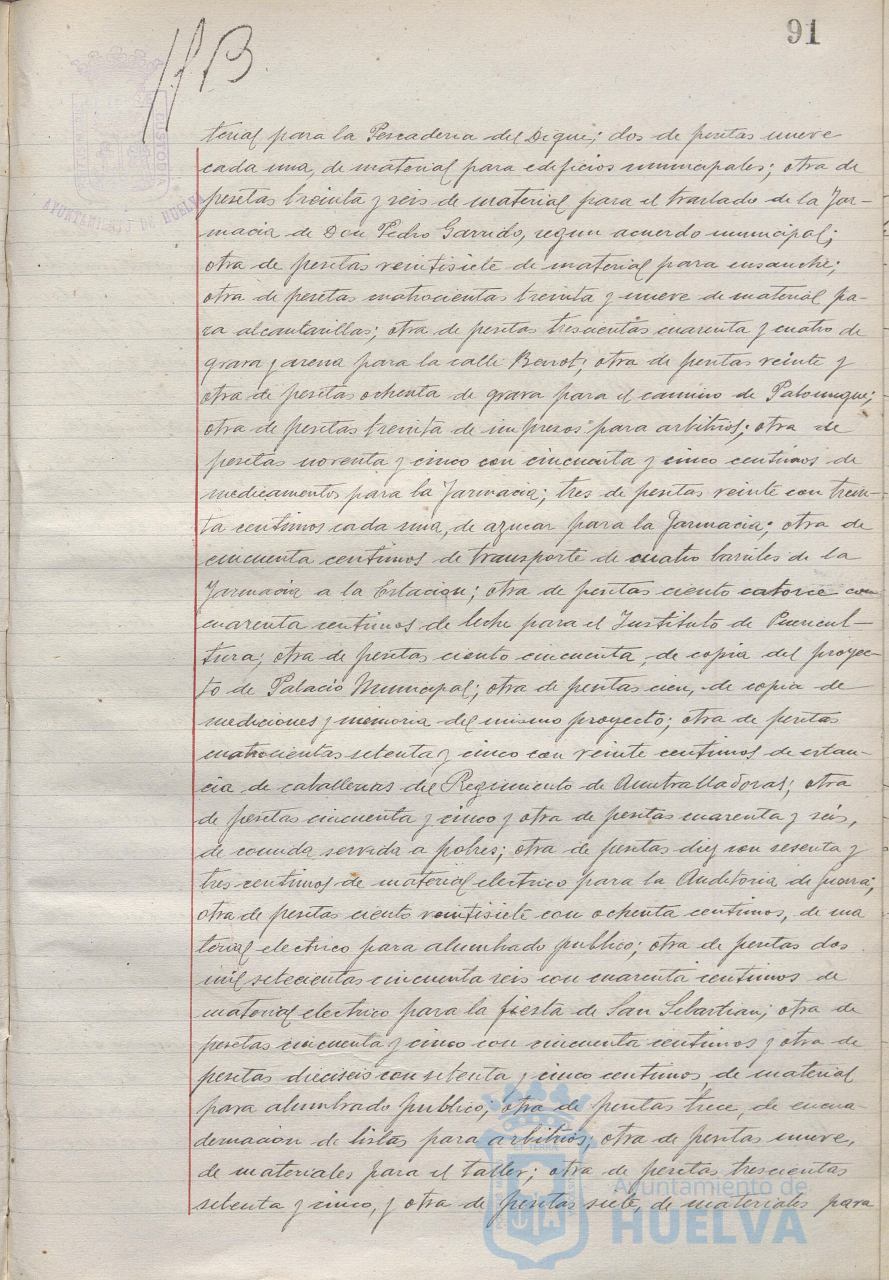 91
terial para la Pescaderia del Dique; dos de pesetas nueve
cada una, de material para edificios municipales; otra de
pesetas treinta y seis de material para el traslado de la Far-
macia de Don Pedro Garrido, segun acuerdo municipal;
otra de pesetas veintisiete de material para ensanche;
otra de pesetas cuatrocientas treinta y nueve de material pa-
ra alcantarillas; otra de pesetas trescientas cuarenta y cuatro de
grava y arena para la calle Berrot; otra de pesetas veinte y
otra de pesetas ochenta de grava para el camino de Palomeque;
otra de pesetas treinta de impresos para arbitrios; otra de
pesetas noventa y cinco con cincuenta y cinco centimos de
medicamentos para la Farmacia; tres de pesetas veinte con trein-
ta centimos cada una, de azucar para la Farmacia; otra de
cincuenta centimos de transporte de cuatro barriles de la
Farmacia a la Estacion; otra de pesetas ciento catorce con
cuarenta centimos de leche para el Instituto de Puericul-
tura; otra de pesetas ciento cincuenta, de copia del proyec-
to de Palacio Municipal; otra de pesetas cien, de copia de
mediciones y memoria del mismo proyecto; otra de pesetas
cuatrocientas setenta y cinco con veinte centimos de estan-
cia de caballerias del Regimiento de Ametralladoras; otra
de pesetas cincuenta y cinco y otra de pesetas cuarenta y seis,
de comida servida a pobres; otra de pesetas diez con sesenta y
tres centimos de material electrico para la Auditoria de Guerra;
otra de pesetas ciento veintisiete con ochenta centimos, de ma
terial electrico para alumbrado publico; otra de pesetas dos
mil setecientas cincuenta seis con cuarenta centimos de
material electrico para la fiesta de San Sebastian; otra de
pesetas cincuenta y cinco con cincuenta centimos y otra de
pesetas dieciseis con setenta y cinco centimos, de material
para alumbrado publico; otra de pesetas trece, de encua-
dernacion de listas para arbitrios; otra de pesetas nueve,
de materiales para el taller; otra de pesetas trescientas
setenta y cinco, y otra de pesetas siete, de materiales para
AYUNTAMIENTO DE HUELVA
CUSTODIA
Ayuntamiento de
HUELVA